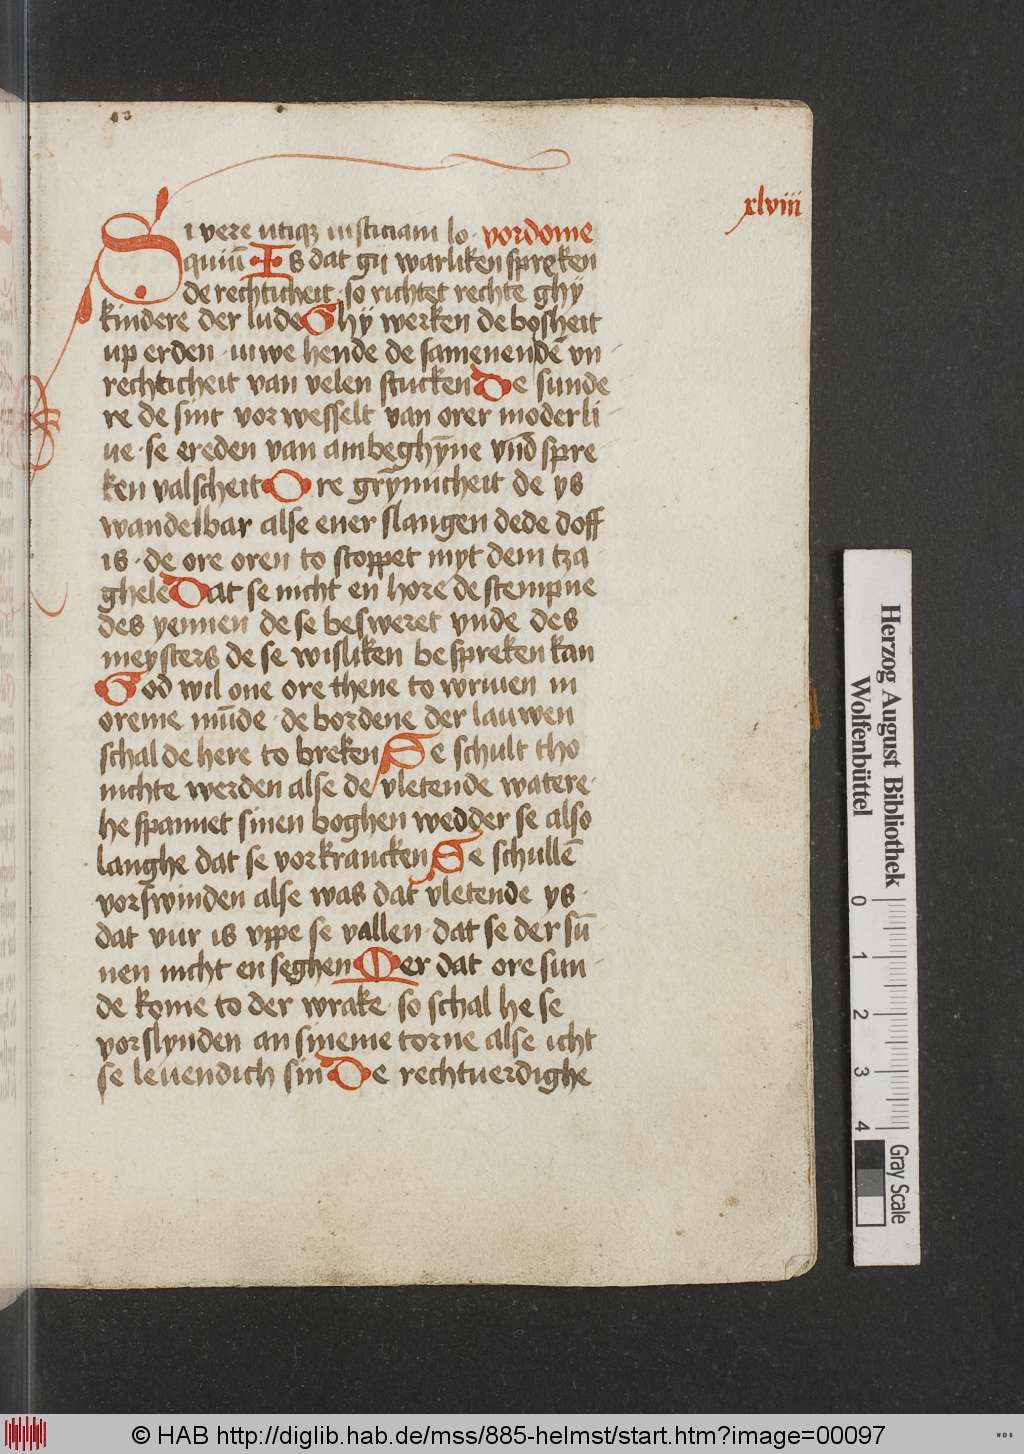 43
xlviii
Si vere utiqꝫ iusticiam lo· vordome
quiuͥ Is dat gij warliken spreken
de rechticheit· so richtet rechte ghy
kindere der lude Ghy werken de bosheit
up erden· uiwe hende de samenendē vn-
rechticheit van velen stucken De sunde
re de sint vorwesselt van orer moderli-
ue· se ereden van ambeghȳne vn̄d spre
ken valscheit Ore grȳmicheit de ys
wandelbar alse ener slangen dede doff
is· de ore oren to stoppet myt dem tza
ghele Dat se nicht en hore de stempne
des yennen de se besweret vnde des
meysters de se wisliken bespreken kan
God wil one ore thene to wriuen in
oreme mūde· de bordene der lauwen
schal de here to breken Se schult tho
nichte werden alse de vletende watere·
he spannet sinen boghen wedder se also
langhe dat se vorkrancken Se schullē
vorswinden alse was dat vletende ys·
dat vur is vppe se vallen· dat se der sū
nen nicht en seghen Eer dat ore sun-
de kome to der wrake· so schal he se
vorslynden an sineme torne alse icht
se leuendich sin De rechtuerdighe
Herzog August Bibliothek
Wolfenbüttel
0 1 2 3 4
Gray Scale
© HAB http://diglib.hab.de/mss/885-helmst/start.htm?image=00097